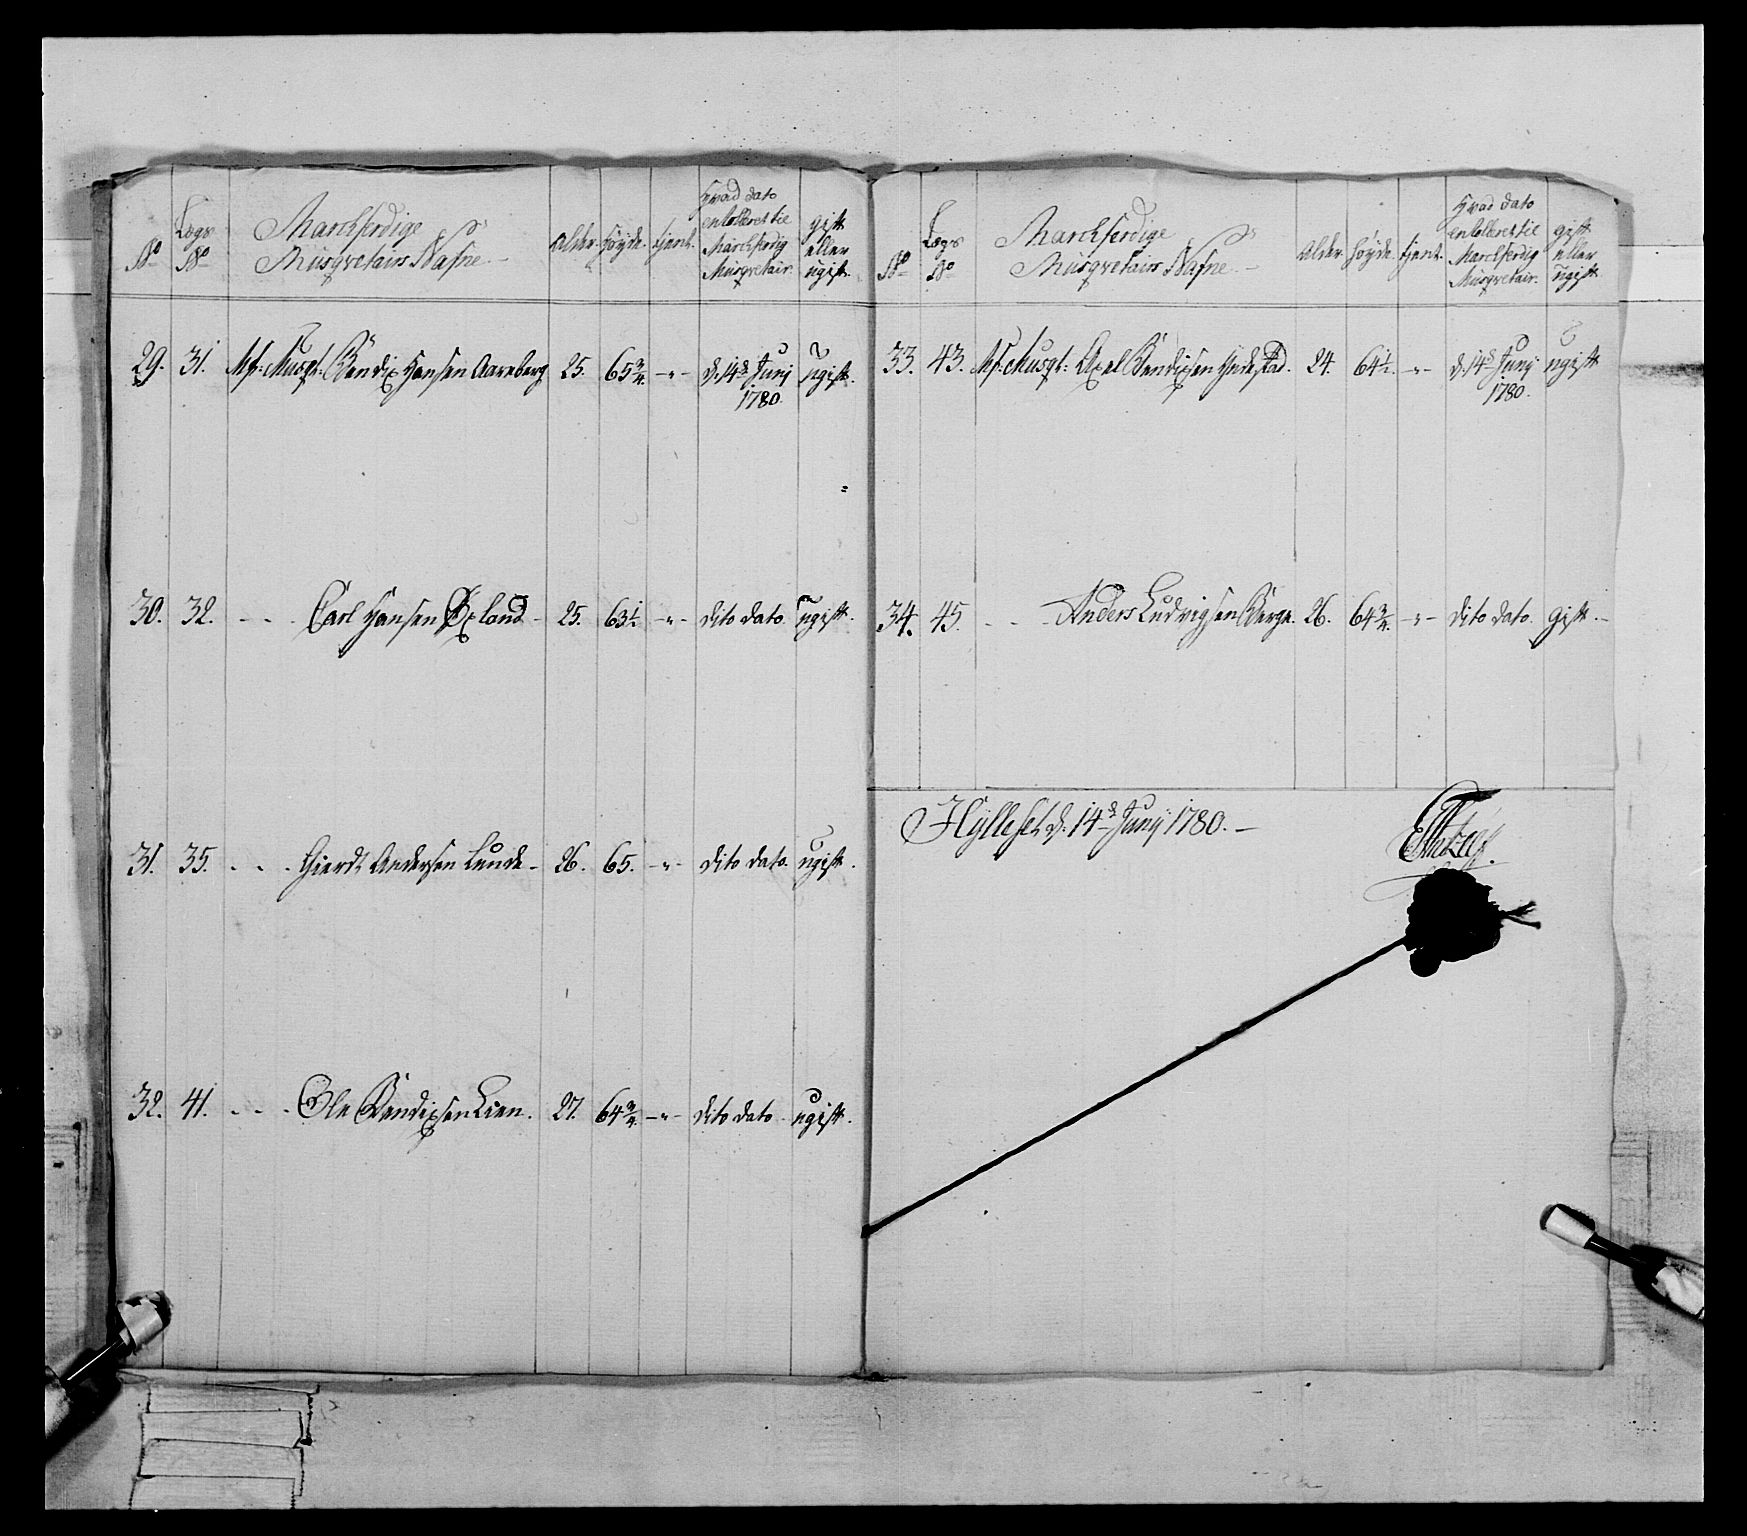 No
Lægs No
Marckferdige
Musqvetairs Nafne.
Alder.
Høyde.
tjent.
Hvad dato
enrolleret til
Marckferdig
Musqvetair.
gift
eller
ugift.
29. 31. Mf: Musqt: Bendix Hansen Aareberg 25. 65 3/4. -"- d. 14de Junij ugift.
1780.
30. 32. - - - Carl Hansen Øxland - 25. 63 1/2. -"- dito dato. ugift.
31. 35. - - - Gierdt Andersen Lunde - 26. 65. -"- dito dato. ugift.
32. 41. - - - Ole Bendixsen Lien. 27. 64 3/4. -"- dito dato ugift.
No
Lægs
No
Marckferdige
Musqvetairs Nafne.
Alder.
Høyde.
tjent.
Hvad dato
enrolleret til
Marckferdig
Musqvetair.
gift
eller
ugift.
33. 43. Mf: Musqt: Axel Bendixsen Yndestad. 24. 64 1/2. -"- d. 14de Junij ugift
1780.
34. 45. - - - Anders Ludvigsen Berge. 26. 64 3/4. -"- dito dato. gift. -
Hyllestd. 14de Junij 1780. -